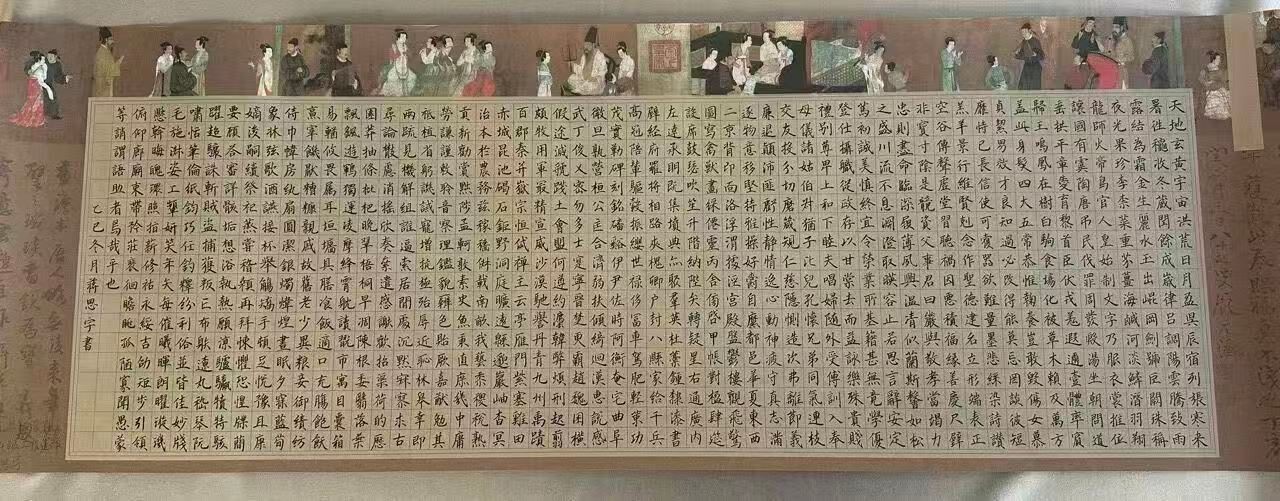 天地玄黃宇宙洪荒日月盈昃辰宿列張寒来
暑往秋收冬藏閏餘成歲律吕調陽雲騰致雨
露結為霜金生麗水玉出崐岡劒號巨闕珠稱
夜光果珍李柰菜重芥薑海鹹河淡鱗潛羽翔
龍師火帝鳥官人皇始制文字乃服衣裳推位
讓國有虞陶唐弔民伐罪周發殷湯坐朝問道
垂拱平章愛育黎首臣伏戎羌遐邇壹體率賓
歸王鳴鳳在樹白駒食場化被草木賴及萬方
盖此身髮四大五常恭惟鞠養豈敢毀傷女慕
貞絜男效才良知過必改得能莫忘罔談彼短
靡恃己長信使可覆器欲難量墨悲絲染詩讚
羔羊景行維賢剋念作聖德建名立形端表正
空谷傳聲虛堂習聽禍因惡積福緣善慶尺璧
非寶寸陰是競資父事君曰嚴與敬孝當竭力
忠則盡命臨深履薄夙興温凊似蘭斯馨如松
之盛川流不息淵澄取暎容止若思言辭安定
篤初誠美慎終宜令榮業所基籍甚無竟學優
登仕攝職從政存以甘棠去而益詠樂殊貴賤
禮别尊卑上和下睦夫唱婦隨外受傅訓入奉
母儀諸姑伯叔猶子比兒孔懷兄弟同氣連枝
交友投分切磨箴規仁慈隱惻造次弗離節義
廉退顛沛匪虧性靜情逸心動神疲守真志滿
逐物意移堅持雅操好爵自縻都邑華夏東西
二京背邙面洛浮渭據涇宮殿盤鬱樓觀飛驚
圖寫禽獸畫綵僊靈丙舍傍啓甲帳對楹肆筵
設席鼓瑟吹笙升階納陛弁轉疑星右通廣内
左達承明既集墳典亦聚羣英杜稾鍾隸漆書
壁經府羅將相路俠槐卿户封八縣家給千兵
高冠陪輦驅轂振纓世祿侈富車駕肥輕策功
茂實勒碑刻銘磻溪伊尹佐時阿衡奄宅曲阜
微旦孰營桓公匡合濟弱扶傾綺迴漢惠説感
武丁俊乂密勿多士寔寧晉楚更霸趙魏困橫
假途滅虢踐土會盟何遵約法韓弊煩刑起翦
頗牧用軍最精宣威沙漠馳譽丹青九州禹跡
百郡秦并嶽宗恒岱禪主云亭雁門紫塞雞田
赤城昆池碣石鉅野洞庭曠遠緜邈巖岫杳冥
治本於農務茲稼穡俶載南畝我藝黍稷稅熟
貢新勸賞黜陟孟軻敦素史魚秉直庶幾中庸
勞謙謹勅聆音察理鑑貌辨色貽厥嘉猷勉其
祗植省躬譏誡寵增抗極殆辱近恥林皋幸即
兩疏見機解組誰逼索居閒處沉默寂寥求古
尋論散慮逍遥欣奏累遣慼謝歡招渠荷的歷
園莽抽條枇杷晚翠梧桐早凋陳根委翳落葉
飄飖遊鵾獨運凌摩絳霄耽讀翫市寓目囊箱
易輶攸畏屬耳垣墻具膳飡飯適口充腸飽飫
烹宰飢厭糟糠親戚故舊老少異糧妾御績紡
侍巾帷房紈扇圓潔銀燭煒煌晝眠夕寐藍笋
象牀弦歌酒讌接杯舉觴矯手頓足悅豫且康
嫡後嗣續祭祀蒸嘗稽顙再拜悚懼恐惶牋牒簡
要顧答審詳骸垢想浴執熱願涼驢騾犢特駭
躍超驤誅斬賊盗捕獲叛亡布射遼丸嵇琴阮
嘯恬筆倫紙鈞巧任釣釋紛利俗並皆佳妙
毛施淑姿工顰妍笑年矢每催曦暉朗曜琁璣
懸斡晦魄環照指薪修祜永綏吉劭矩步引領
俯仰廊廟束帶矜莊徘徊瞻眺孤陋寡聞愚蒙
等誚謂語助者焉哉乎也
乙巳冬月蔣思字書